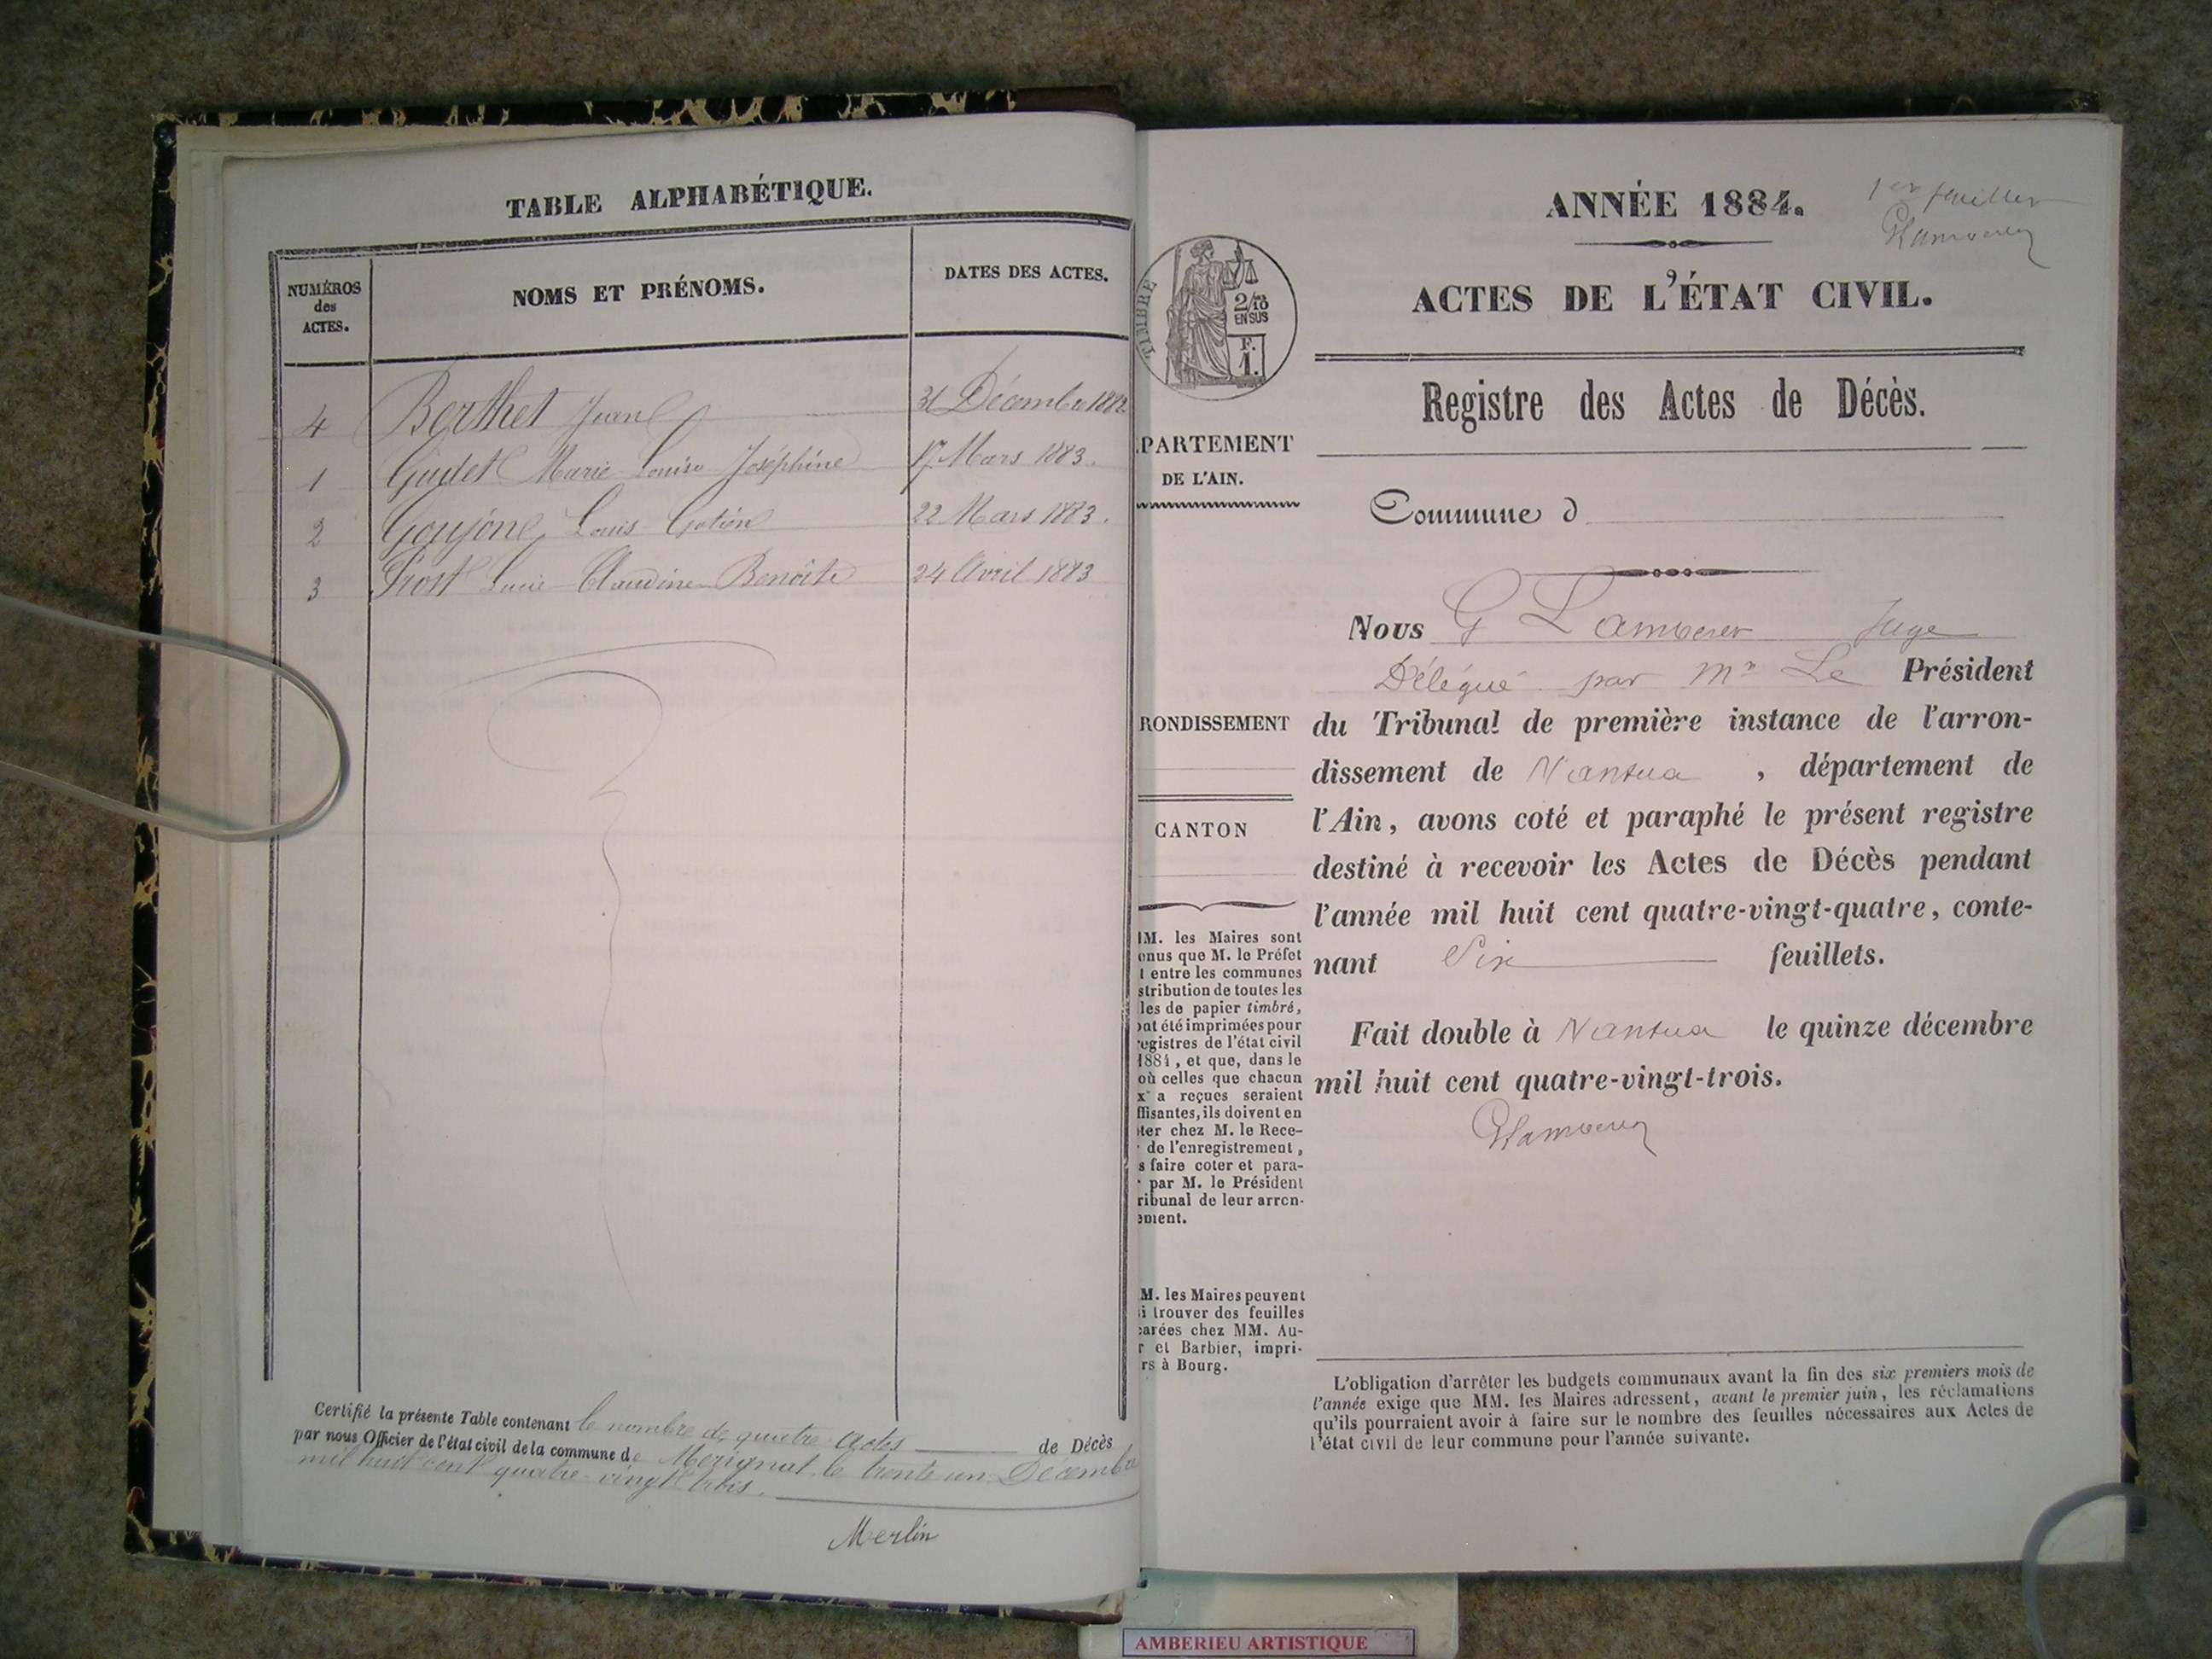 TABLE ALPHABÉTIQUE.
NUMÉROS
des
ACTES.
NOMS ET PRÉNOMS.
DATES DES ACTES.
4 Berthet Jean 31 Décembre
1 Marie Louise Joséphine 17 Mars 1883.
2 Goujon Louis 22 Mars 1883.
3 Lucie Claudine Benoîte 24 Avril 1883
Certifié la présente Table contenant le nombre de quatre actes de Décès
par nous Officier de l'état civil de la commune de Mérignat le trente un Décembre
mil huit cent quatre-vingt trois.
Merlin
1er feuillet
ANNÉE 1884.
ACTES DE L'ÉTAT CIVIL.
TIMBRE
2/10
EN SUS
F.
1.
Registre des Actes de Décès.
PARTEMENT
DE L'AIN.
Commune d
Nous G Juge
Délégué par Mr Le Président
RONDISSEMENT
du Tribunal de première instance de l'arron-
dissement de Nantua, département de
CANTON
l'Ain, avons coté et paraphé le présent registre
destiné à recevoir les Actes de Décès pendant
l'année mil huit cent quatre-vingt-quatre, conte-
nant Six feuillets.
Fait double à Nantua le quinze décembre
mil huit cent quatre-vingt-trois.
M. les Maires sont
enus que M. le Préfet
t entre les communes
stribution de toutes les
les de papier timbré,
ont été imprimées pour
egistres de l'état civil
1884, et que, dans le
où celles que chacun
x a reçues seraient
ffisantes, ils doivent en
ter chez M. le Rece-
de l'enregistrement,
s faire coter et para-
par M. le Président
ribunal de leur arron-
ement.
M. les Maires peuvent
i trouver des feuilles
arées chez MM. Au-
r et Barbier, impri-
rs à Bourg.
L'obligation d'arrêter les budgets communaux avant la fin des six premiers mois de
l'année exige que MM. les Maires adressent, avant le premier juin, les réclamations
qu'ils pourraient avoir à faire sur le nombre des feuilles nécessaires aux Actes de
l'état civil de leur commune pour l'année suivante.
AMBERIEU ARTISTIQUE